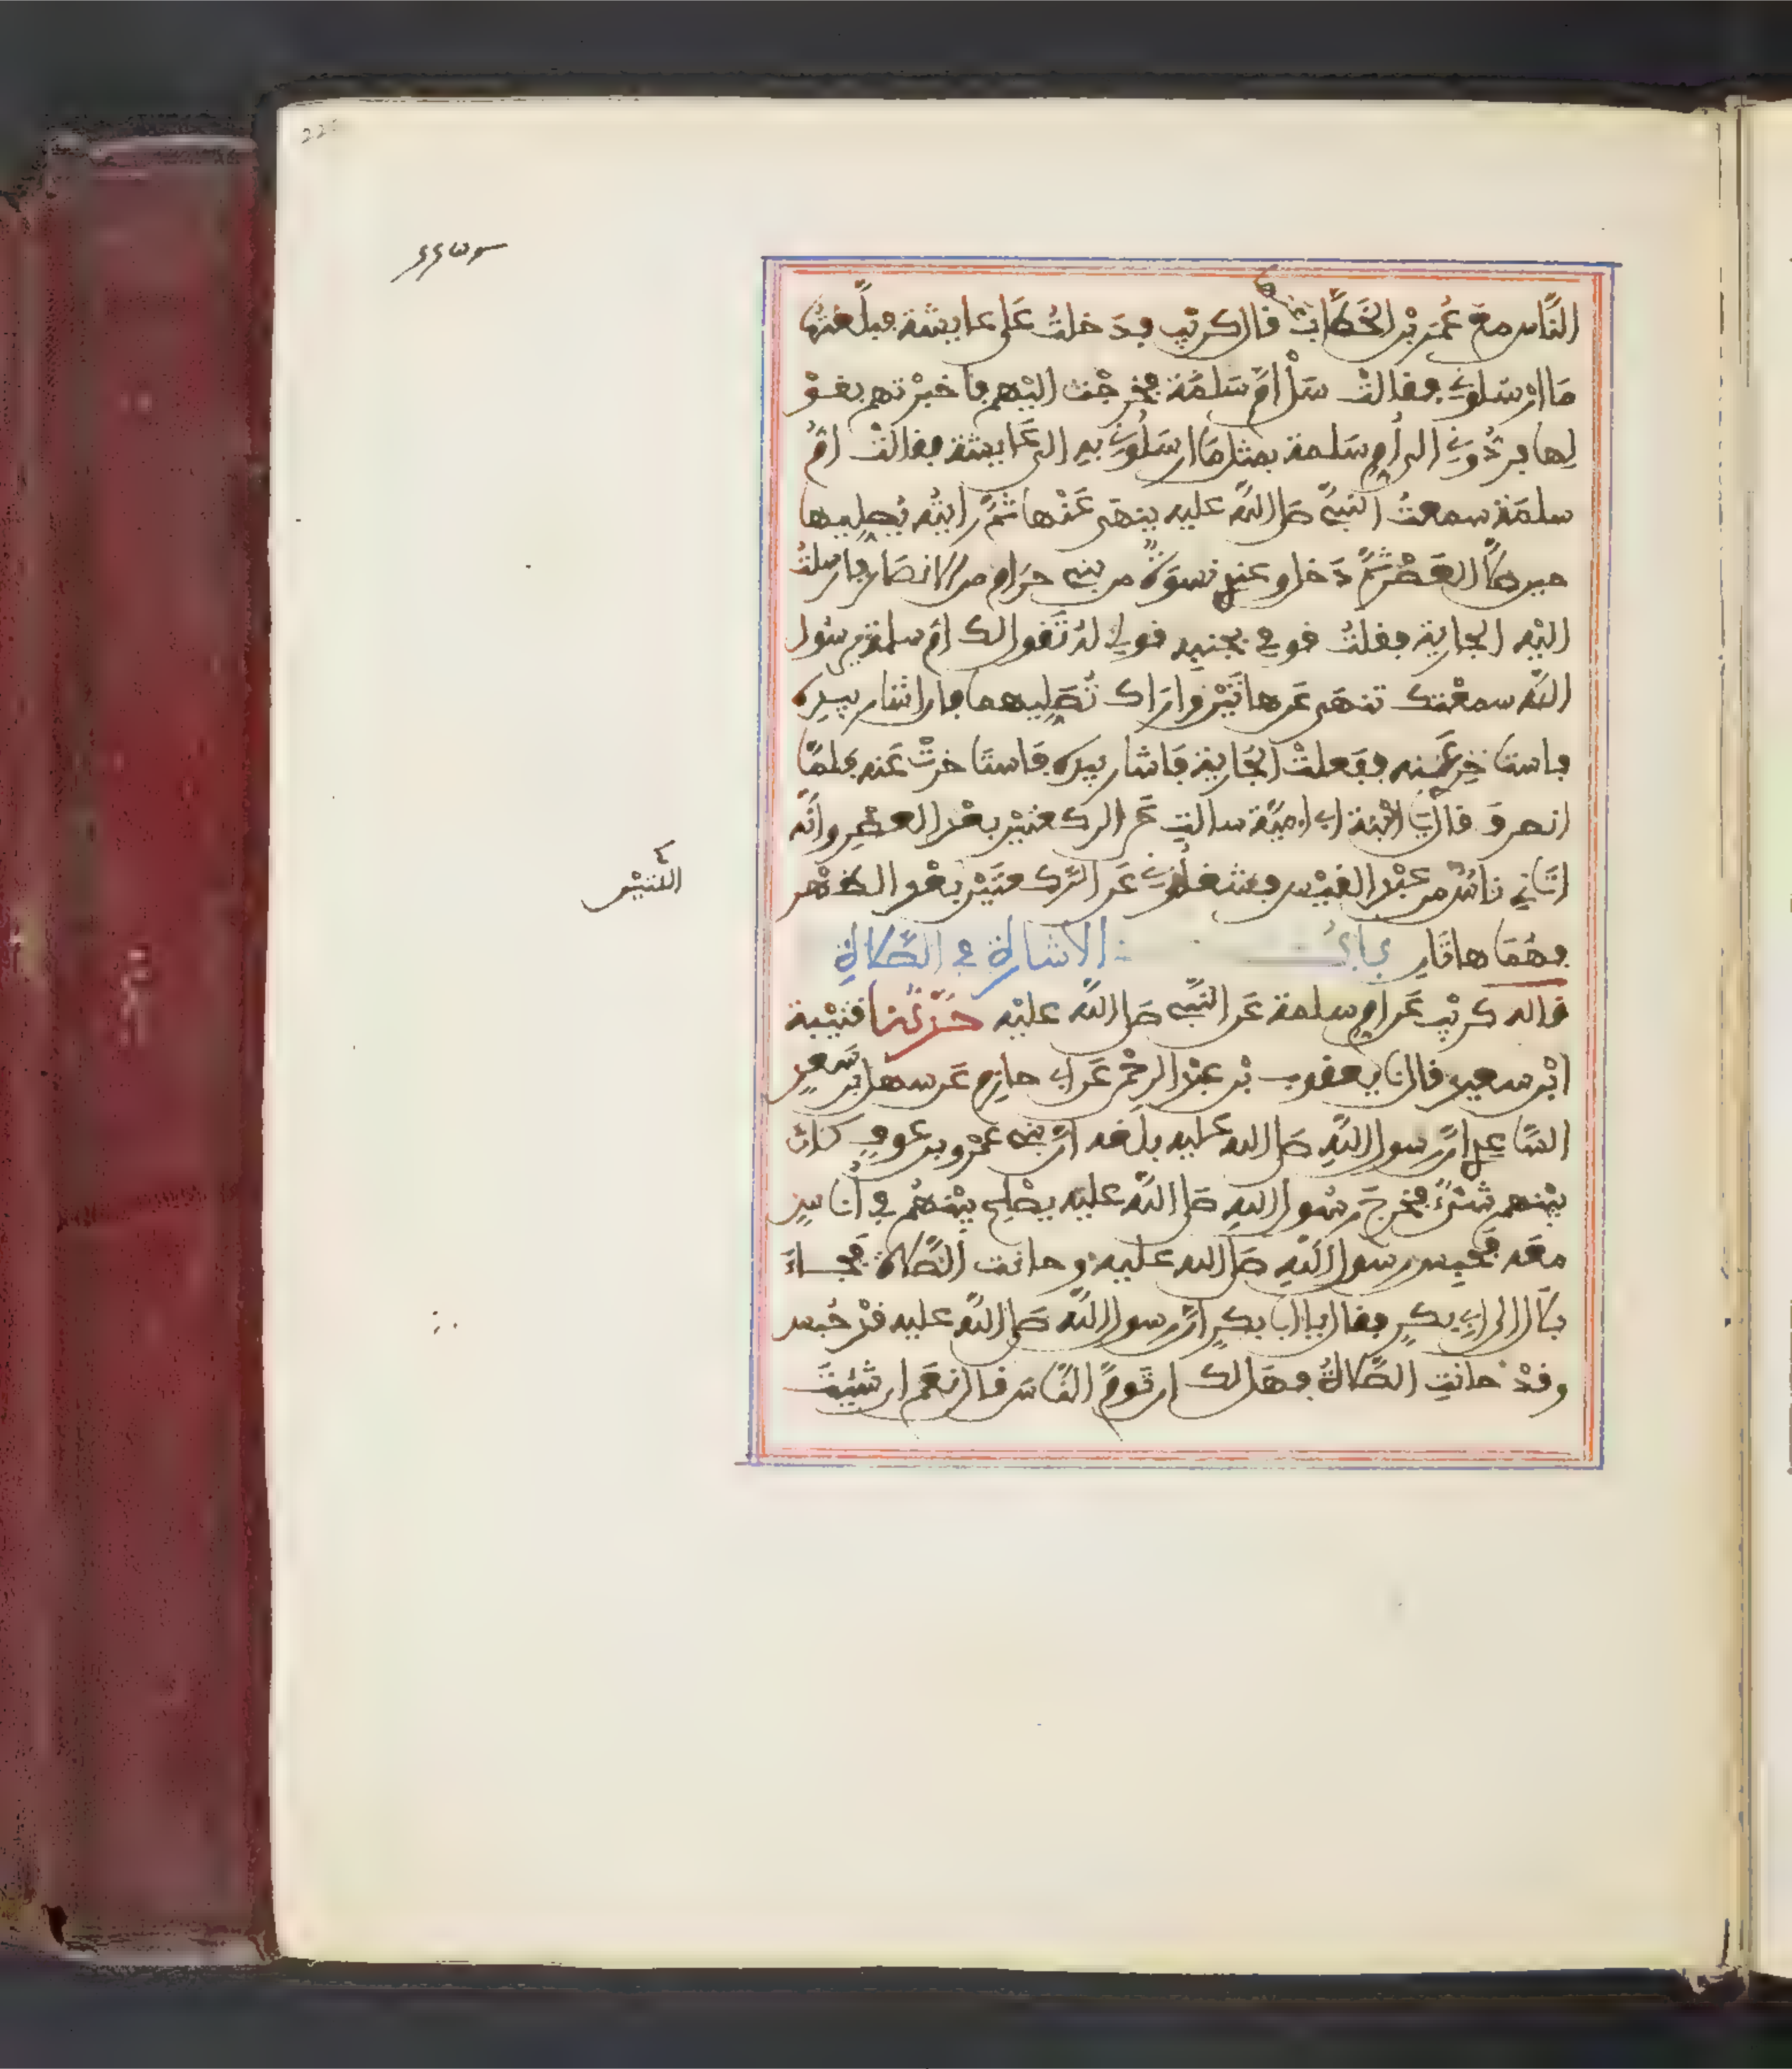 النَّاس مع عُمَر بْن الخَطَّاب قال كريْب فدَخلتُ عَلى عايشة فبلَّغتُها
مَا ارْسَلونِي فقالتْ سَلْ امَّ سَلمَة فخرجْت اليْهم فاخبرْتهم بقوْ
لها فردُّونِي الى أم سَلمة بمثل مَا ارسَلُونِي به الى عَايشة فقالتْ امُّ
سلمَة سمعتُ النبيَّ صلى اللَّه عليه ينهَى عَنْها ثمَّ رايتُه يُصَليهما
حين صلَّى العَصْر ثمَّ دَخل وعندِي نسوَةٌ من بني حرَام من الانصَار فارسلتُ
اليْه الجارية فقلتُ قومي بجنبه قولي لهُ تَقول لك امّ سلمة يرسُول
اللَّه سمعْتك تنهَى عَن هاتَيْن وَارَاك تُصَليهما فان اشار بيدِه
فاستاخِرِي عَنه ففَعلتْ الجَارية فاشار بيدِه فاستَاخرتْ عَنه فلمَّا
انصرفَ قال يا ابْنة ابي اميَّة سالتِ عَن الركعتيْن بعْد العصْرِ وانَّه
اتَاني ناسٌ من عبْد القيْس فشغلُونِي عَن الرَّكعتَيْن بعْد الظهْر
اللتيْن
فهُمَا هاتَانِ بابُ الاشارة في الصَّلاةِ
قاله كريْب عَن امِّ سلمة عَن النَّبيّ صلى اللَّه عليْه حَدَّثنا قتيْبة
ابْن سعيدٍ قال نا يعقوب بْن عبْد الرحْمن عَن ابي حازم عَن سهل بن سَعدٍ
السَّاعدِي انَّ رسول اللَّهِ صلى الله عليه بلَغه انَّ بني عمْرو بن عوفٍ كانَ
بيْنهم شَيْءٌ فخرجَ رسُول اللهِ صَلى اللَّه عليْه يصْلح بيْنهُم في أناسٍ
معَه فحُبِس رسول اللَّهِ صلى الله عليه وحانت الصَّلاة فجَاءَ
بلَال الى ابي بكرٍ فقال يا ابا بكرٍ انَّ رسول اللَّه صَلى اللَّه عليه قدْ حُبس
وقدْ حانتِ الصَّلاةُ فهَل لك ان تَومَّ النَّاسَ قال نعَم ان شئتَ